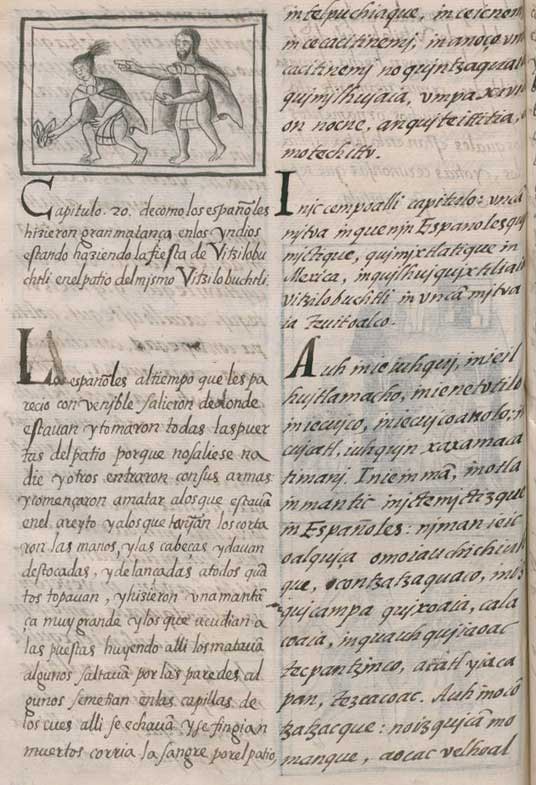 Capitulo. 20. de como los españoles
hizieron gran matança en los yndios
estando haziendo la fiesta de Vitzilobu
chtli en el patio del mismo Vitzilobuchtli.
Los españoles al tiempo que les pa
recio convenible salieron de donde
estauan y tomaron todas las puer
tas del patio porque no saliese na
die y otros entraron con sus armas
y començaron a matar a los que estauã
en el areyto y a los que tañyan los corta
ron las manos, y las cabeças y dauan
de stocadas, y de lançadas a todos quã
tos topauan, y hizieron vna matan
ça muy grande y los que acudian a
las puertas huyendo alli los matauã
algunos saltauã por las paredes al
gunos se metian en las capillas de
los cues alli se echauã y se fingian
muertos corria la sangre por el patio,
intelpuchiaque, in ceienom
in cecacitinemj, in anoço vn
cacitinemj no quintzaquan
motechitiv.
Inic cempoalli capitulo: vncã
mjtva in quenin Españoles qui
mjctique, quimjxtlatique in
Mexica, in
Vitzilobuchtli in vncã mjtva
ia teuitoalco.
Auh in ie iuhquj, in ie il
huitlamacho, in ie netotilo
in ie cujco, in ie cujcoanolo; in
cujcatl, iuhqujn xaxamaca
timanj. In ie imãn, in otla
inmantic injc temjctizque
in Españoles: njman ie ic
oalquiça omoiauchichiuh
que, contzatzaquaco, in iz
qujcampa quixoaia, cala
coaia, in quauhqujiaoac
tecpantzinco, acatl yiaca
pan, tezcacoac. Auh in ocõ
tzatzacque: no izqujcã mo
manque, aocac vel hoal